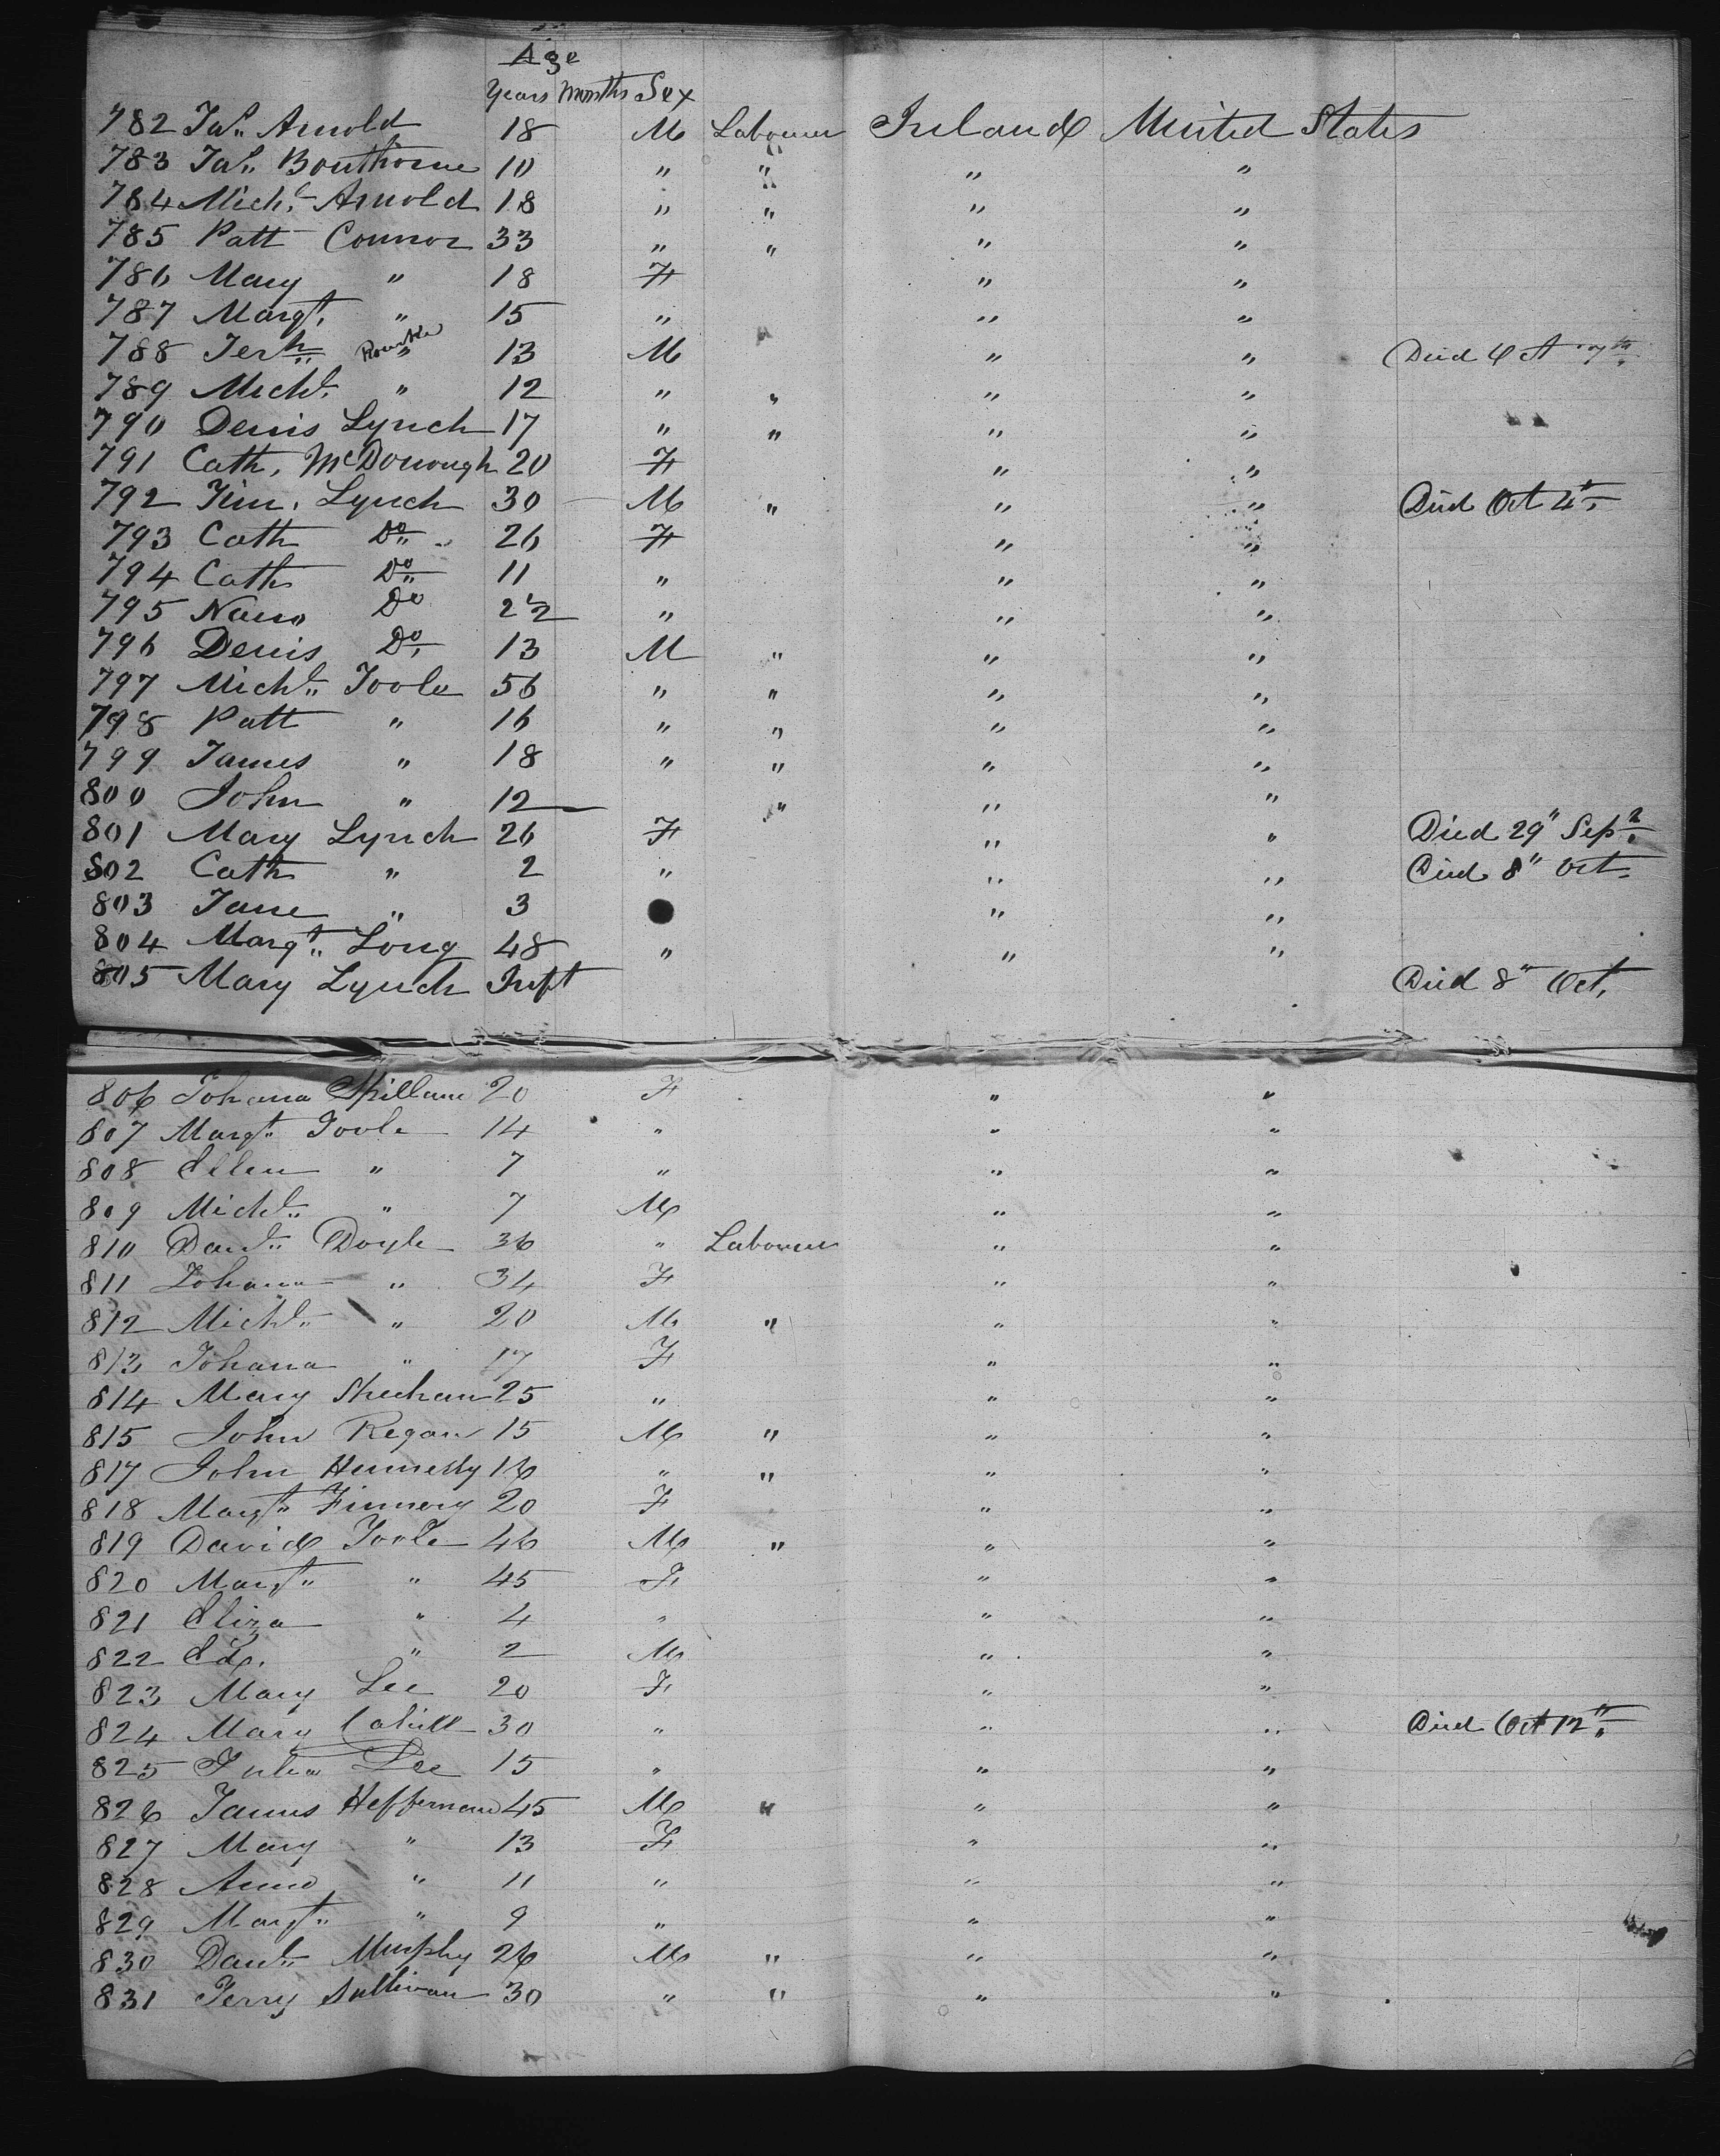 Age
Years Months Sex
782 Jas. Arnold 18 M Labourer Ireland United States
783 Jas. Bouthorne 10 " " " "
784 Michl. Arnold 18 " " " "
785 Patt Connor 33 " " " "
786 Mary " 18 F " "
787 Margt. " 15 " " "
788 Jerh. " 13 M " " Died Oct 7th
789 Michl. " 12 " " " "
790 Denis Lynch 17 " " " "
791 Cath. McDonough 20 F " "
792 Tim. Lynch 30 M " " " Died Oct 4th
793 Cath Do 26 F " "
794 Cath Do 11 " " "
795 Nano Do 2½ " " "
796 Denis Do 13 M " " "
797 Michl. Toole 56 " " " "
798 Patt " 16 " " " "
799 James " 18 " " " "
800 John " 12 " " "
801 Mary Lynch 26 F " " Died 29" Sept.
802 Cath " 2 " " " Died 8" Oct.
803 Jane " 3 " "
804 Margt. Long 48 " " "
805 Mary Lynch Inft Died 8" Oct.
806 Johana Spillane 20 F " "
807 Margt. Toole 14 " " "
808 Ellen " 7 " " "
809 Michl. " 7 M " "
810 Danl. Doyle 36 " Labourer " "
811 Johana " 34 F " "
812 Michl. " 20 M " " "
813 Johana " 17 F " "
814 Mary Sheehan 25 " " "
815 John Regan 15 M " " "
817 John Hennesty 16 " " " "
818 Margt. Finnery 20 F " "
819 David Toole 46 M " " "
820 Margt. " 45 F " "
821 Eliza " 4 " " "
822 Ed. " 2 M " "
823 Mary Lee 20 F " "
824 Mary Cahill 30 " " " Died Oct 12th
825 Julia Lee 15 " " "
826 James Heffernan 45 M " " "
827 Mary " 13 F " "
828 Anno " 11 " " "
829 Margt. " 9 " " "
830 Danl. Murphy 26 M " " "
831 Jerry Sullivan 30 " " " "